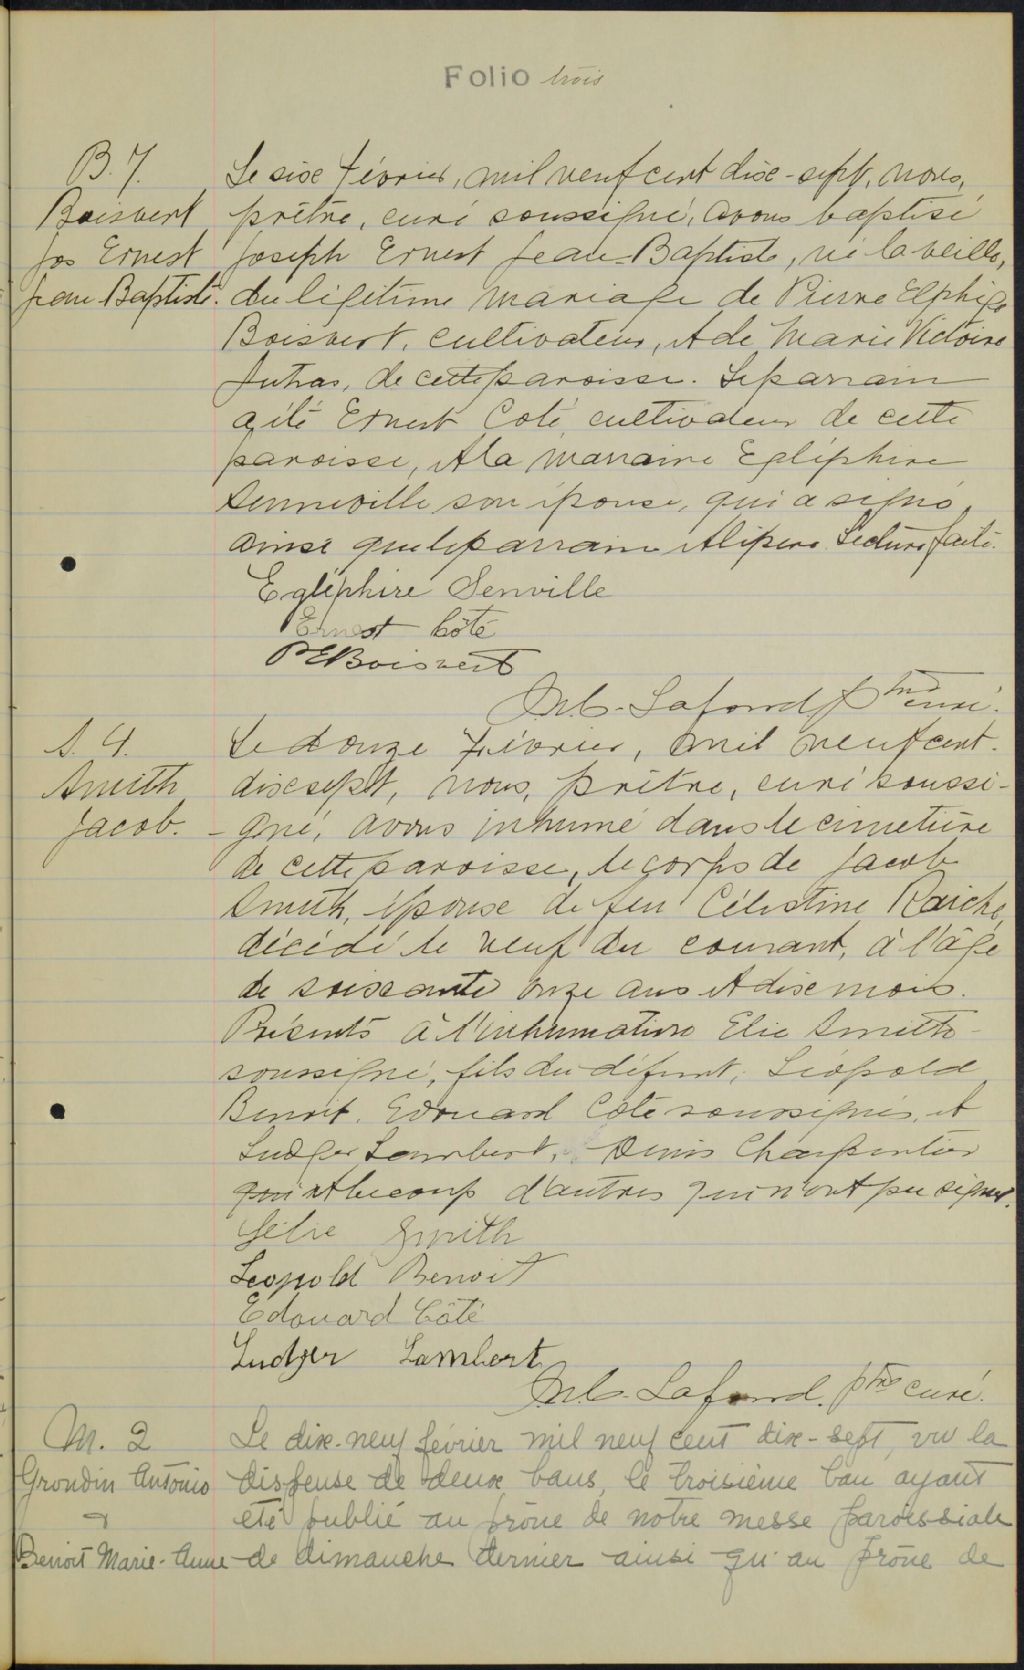 Folio trois
B. 7.
Boisvert
Jos Ernest
Jean Baptiste.
Le six février, mil neuf cent dix-sept, nous,
prêtre, curé soussigné, avons baptisé
Joseph Ernest Jean-Baptiste, né la veille,
du légitime mariage de Pierre Elphège
Boisvert, cultivateur, et de Marie Victoire
Jutras, de cette paroisse. Le parrain
a été Ernest Coté, cultivateur de cette
paroisse, et la marraine Egléphire
Senneville son épouse, qui a signé
ainsi que le parrain et le père. Lecture faite.
Egléphire Senville
Ernest Côté
P E Boisvert
Lafond, ptre curé.
S. 4.
Smith
Jacob.
Le douze février, mil neuf cent
dix sept, nous, prêtre, curé soussi-
-gné, avons inhumé dans le cimetière
de cette paroisse, le corps de Jacob
Smith, épouse de feu Célestine Raiche,
décédé le neuf du courant, à l'âge
de soixante onze ans et dix mois.
Présents à l'inhumation Elie Smith
soussigné, fils du défunt, Léopold
Benoit, Edouard Coté soussignés, et
Ludger Lambert, Denis Charpentier
qui et beaucoup d'autres qui n'ont pu signer.
Smith
Leopold Benoit
Edouard Côté
Ludger Lambert
Lafond, ptre curé.
M. 2
Grondin Antonio
&
Benoit Marie-Anne
Le dix-neuf février mil neuf cent dix-sept, vu la
dispense de deux bans, le troisième ban ayant
été publié au prône de notre messe paroissiale
de dimanche dernier ainsi qu'au prône de